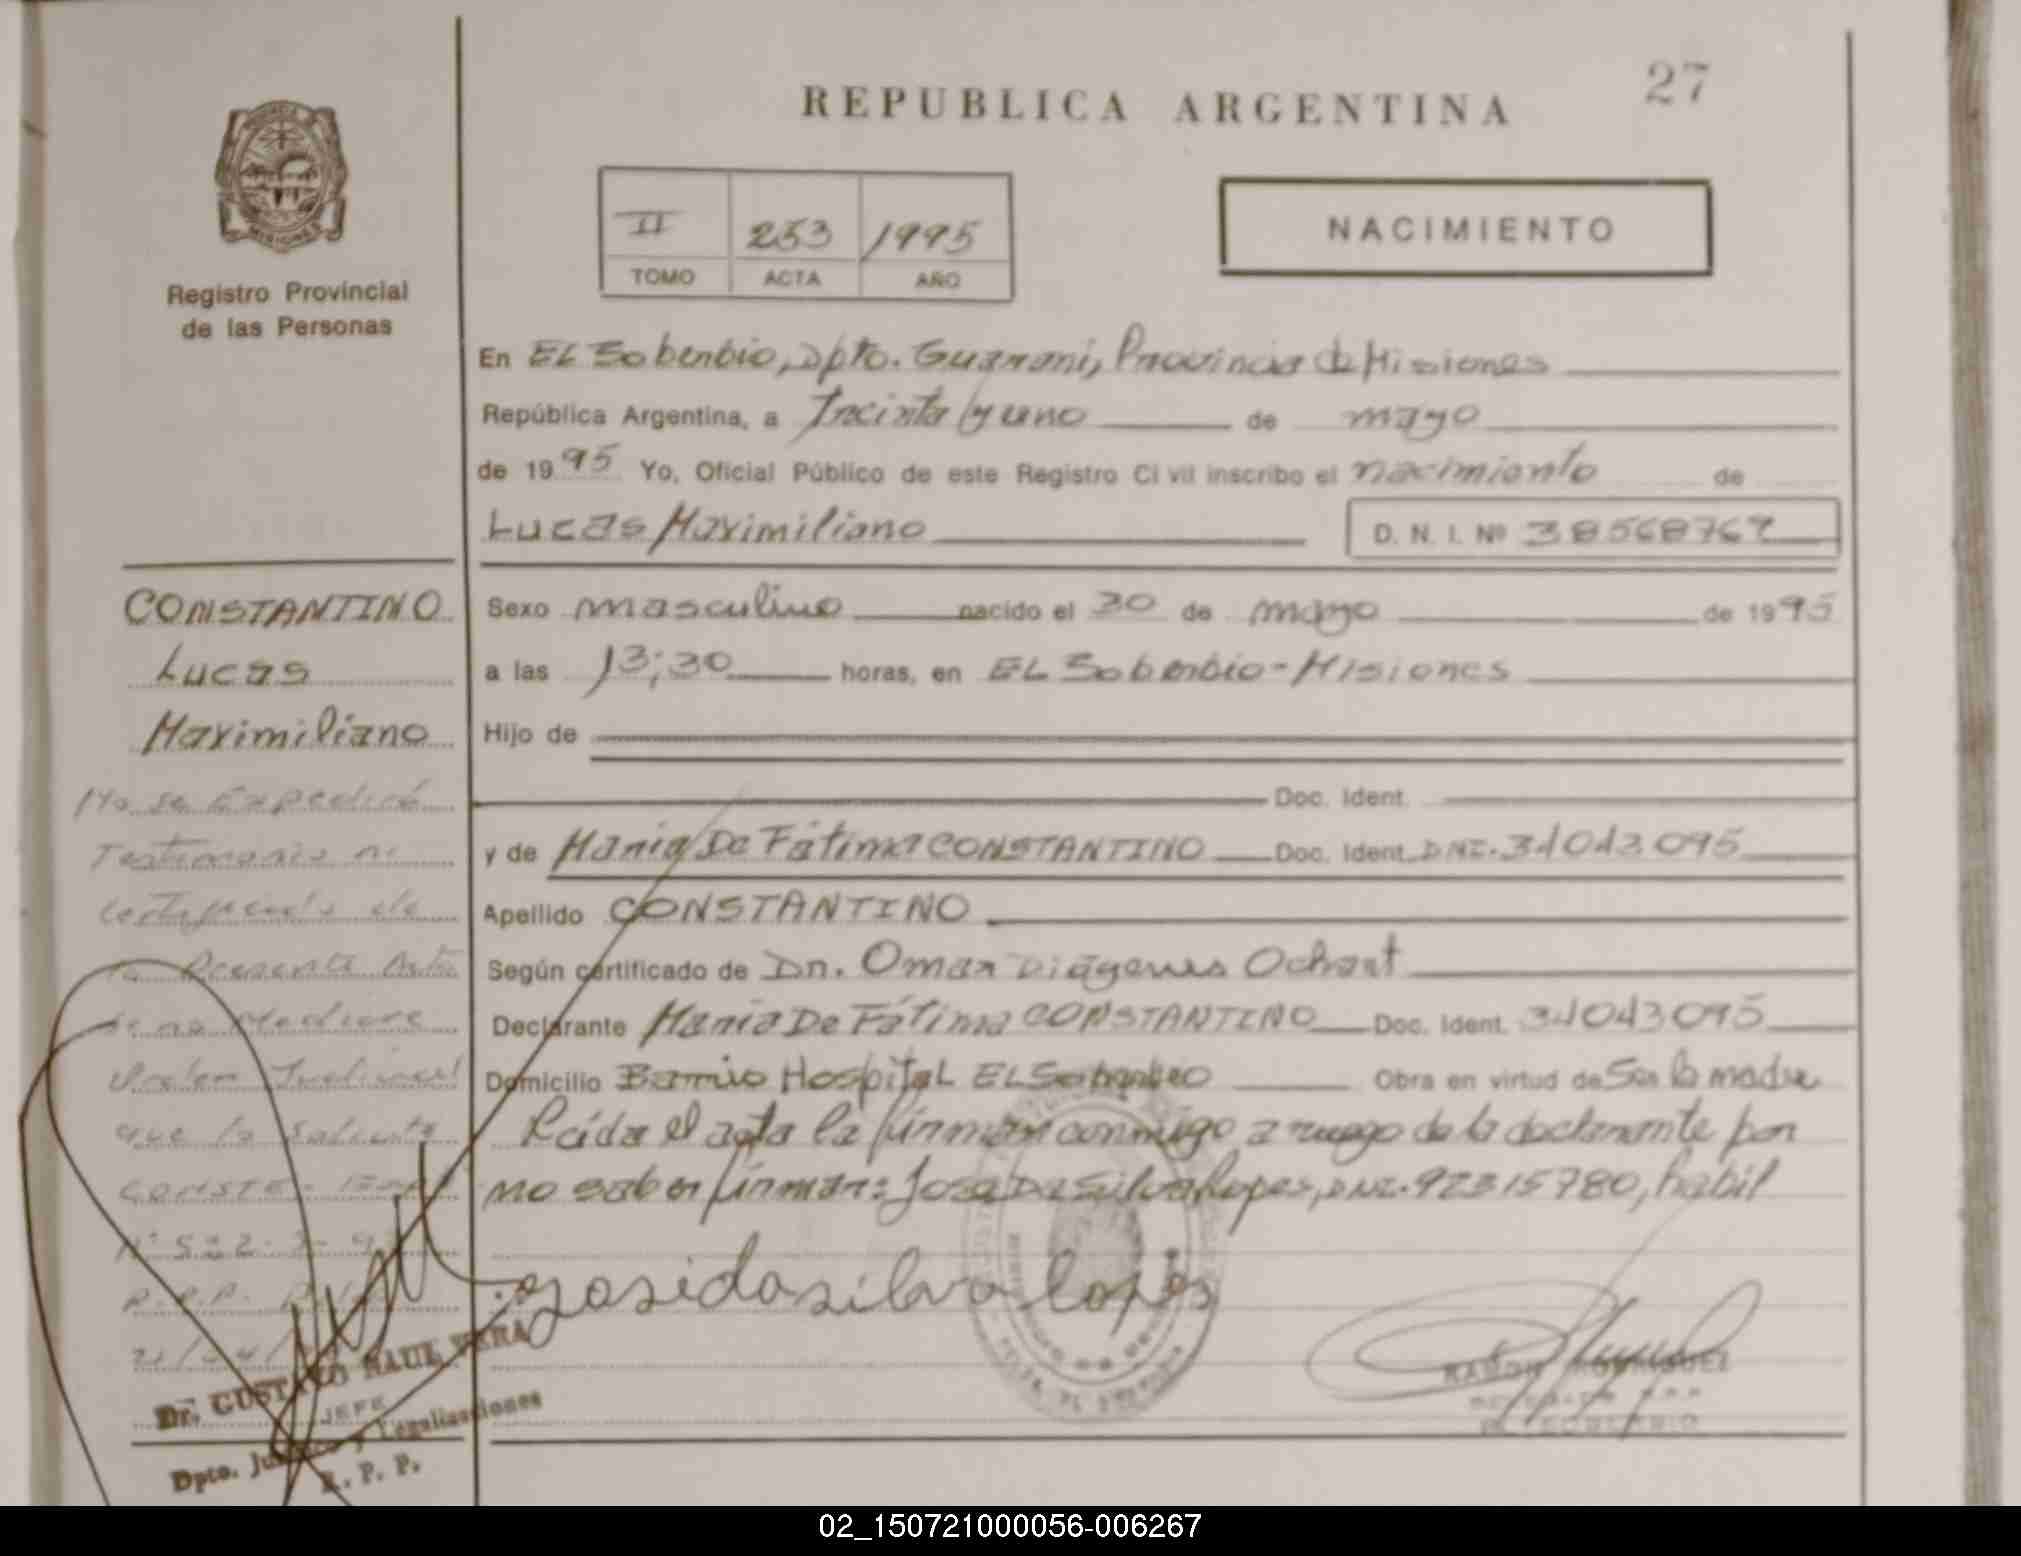 27
REPUBLICA ARGENTINA
II 253 1995
TOMO ACTA AÑO
NACIMIENTO
MISIONES
Registro Provincial
de las Personas
En EL Soberbio, Dpto. Guarani, Provincia de Misiones
República Argentina, a Treinta y uno de mayo
de 1995 Yo, Oficial Público de este Registro Civil inscribo el nacimiento de
Lucas Maximiliano D. N. I. Nº 38568767
CONSTANTINO
Lucas
Maximiliano
Sexo masculino nacido el 30 de mayo de 1995
a las 13:30 horas, en EL Soberbio - Misiones
Hijo de
Doc. Ident.
y de Maria De Fátima CONSTANTINO Doc. Ident. DNI. 34043095
Apellido CONSTANTINO
Según certificado de Dr. Omar Diógenes Ochant
Declarante Maria De Fátima CONSTANTINO Doc. Ident. 34043095
Domicilio Barrio Hospital EL Soberbio Obra en virtud de Ser la madre
Leída el acta la firman conmigo a ruego de la declarante por
no saber firmar: Jose Da Silva Lopes, DNI. 92315780, habil
No se Expedirá
Testimonio ni
certificado de
la Presente Acta
si no Mediare
Orden Judicial
que lo solicite
CONSTE.
R.P.P.
Jose da silva lopes
Dr. GUSTAVO RAUL VERA
JEFE
Dpto. Jurídico y Legalizaciones
R. P. P.
RAMON RODRIGUEZ
DELEGADO R.P.P.
EL SOBERBIO
02_150721000056-006267